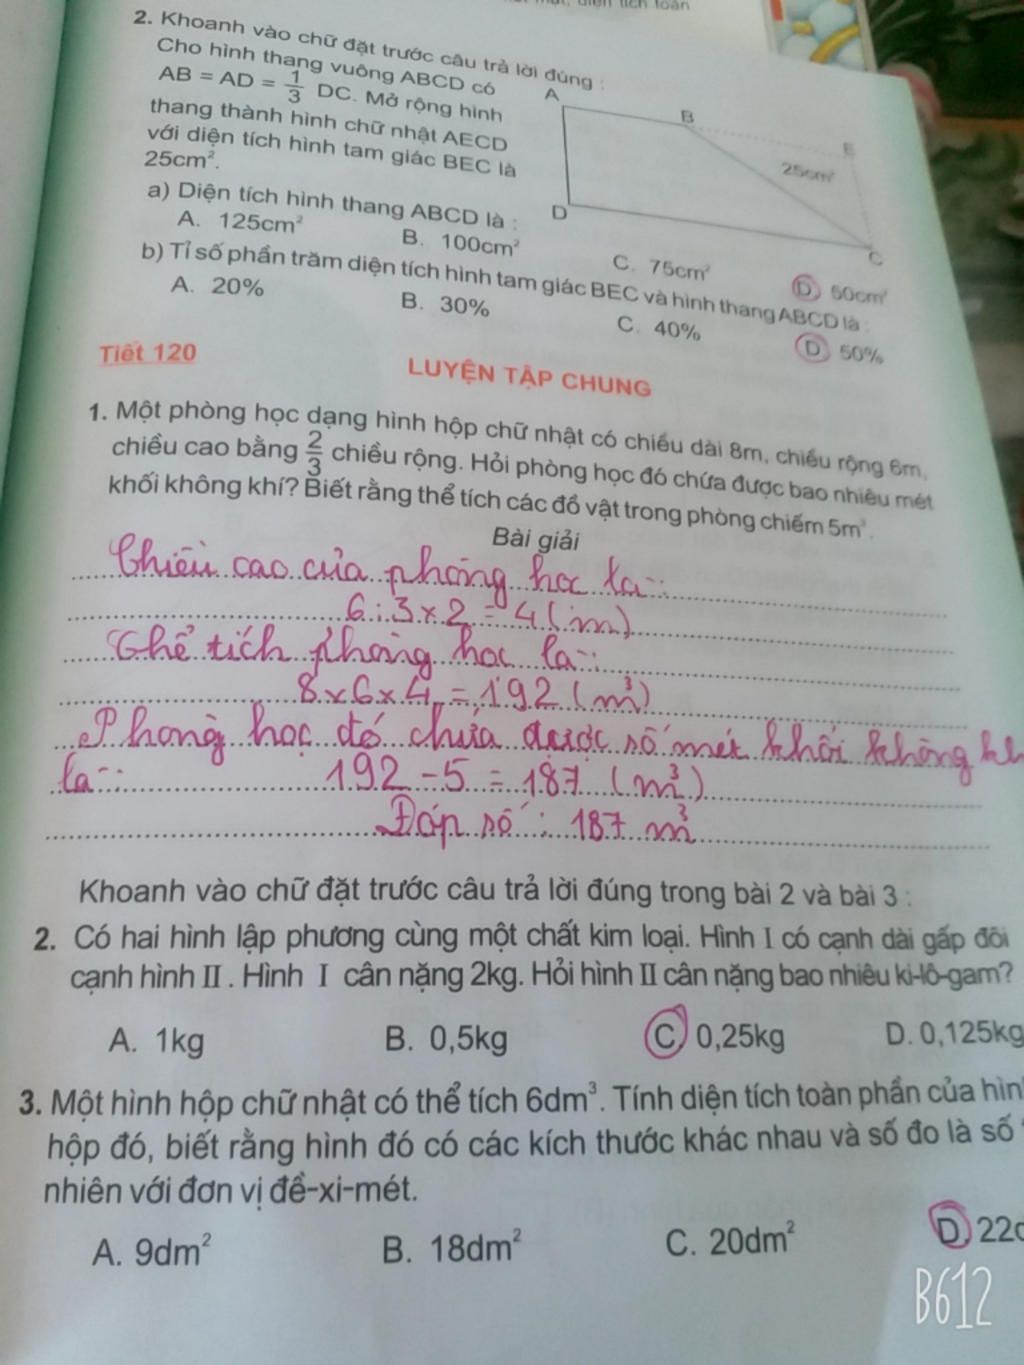 2. Khoanh vào chữ đặt trước câu trả lời đúng :
Cho hình thang vuông ABCD có
AB = AD = 1/3 DC. Mở rộng hình
thang thành hình chữ nhật AECD
với diện tích hình tam giác BEC là
25cm².
A
B
E
25cm²
D
C
a) Diện tích hình thang ABCD là :
A. 125cm² B. 100cm² C. 75cm² D. 50cm²
b) Tỉ số phần trăm diện tích hình tam giác BEC và hình thang ABCD là :
A. 20% B. 30% C. 40% D. 50%
Tiết 120
LUYỆN TẬP CHUNG
1. Một phòng học dạng hình hộp chữ nhật có chiều dài 8m, chiều rộng 6m,
chiều cao bằng 2/3 chiều rộng. Hỏi phòng học đó chứa được bao nhiêu mét
khối không khí? Biết rằng thể tích các đồ vật trong phòng chiếm 5m³.
Bài giải
Chiều cao của phòng học là :
6 : 3 x 2 = 4 (m)
Thể tích phòng học là :
8 x 6 x 4 = 192 (m³)
Phòng học đó chứa được số mét khối không kh
là : 192 - 5 = 187 (m³)
Đáp số : 187 m³
Khoanh vào chữ đặt trước câu trả lời đúng trong bài 2 và bài 3 :
2. Có hai hình lập phương cùng một chất kim loại. Hình I có cạnh dài gấp đôi
cạnh hình II . Hình I cân nặng 2kg. Hỏi hình II cân nặng bao nhiêu ki-lô-gam?
A. 1kg B. 0,5kg C. 0,25kg D. 0,125kg
3. Một hình hộp chữ nhật có thể tích 6dm³. Tính diện tích toàn phần của hìn
hộp đó, biết rằng hình đó có các kích thước khác nhau và số đo là số
nhiên với đơn vị đề-xi-mét.
A. 9dm² B. 18dm² C. 20dm² D. 22d
B612